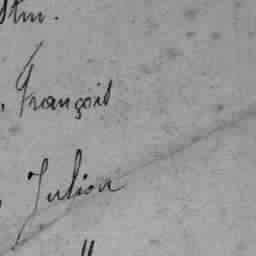 , François
, Julien
"